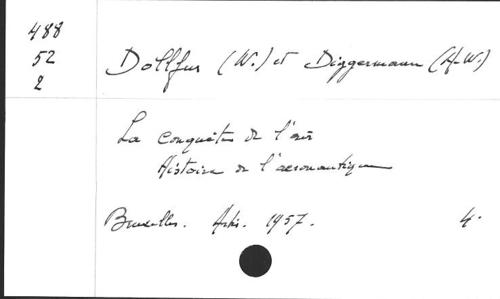 488
52
2
Dollfus (W.) et Diggermann (A-W.)
La conquête de l'air
Histoire de l'aéronautique
Bruxelles. Artis. 1957. 4.